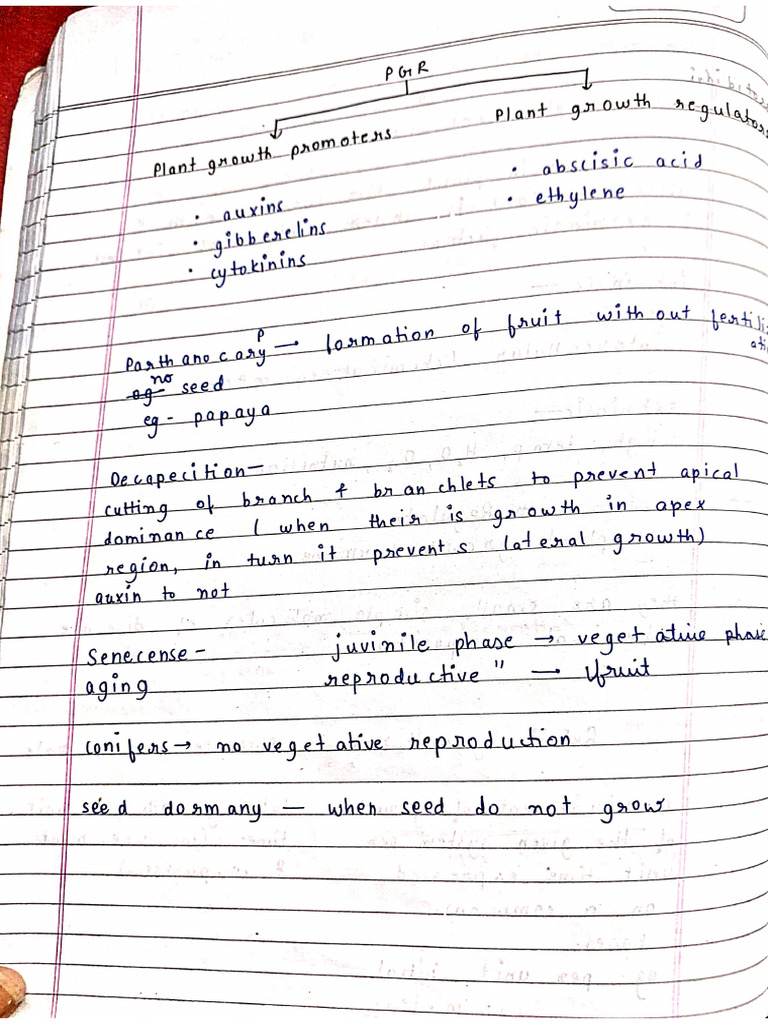 PGR
Plant growth promoters
Plant growth regulators
• auxins
• gibberelins
• cytokinins
• abscisic acid
• ethylene
Parthanocaryp → formation of fruit with out fertili
ati
no seed
eg - papaya
Decapecition -
cutting of branch & branchlets to prevent apical
dominance ( when their is growth in apex
region, in turn it prevents lateral growth)
auxin to not
Senecense - juvinile phase → vegetative phase
aging reproductive " — fruit
conifers → no vegetative reproduction
seed dormany — when seed do not grow